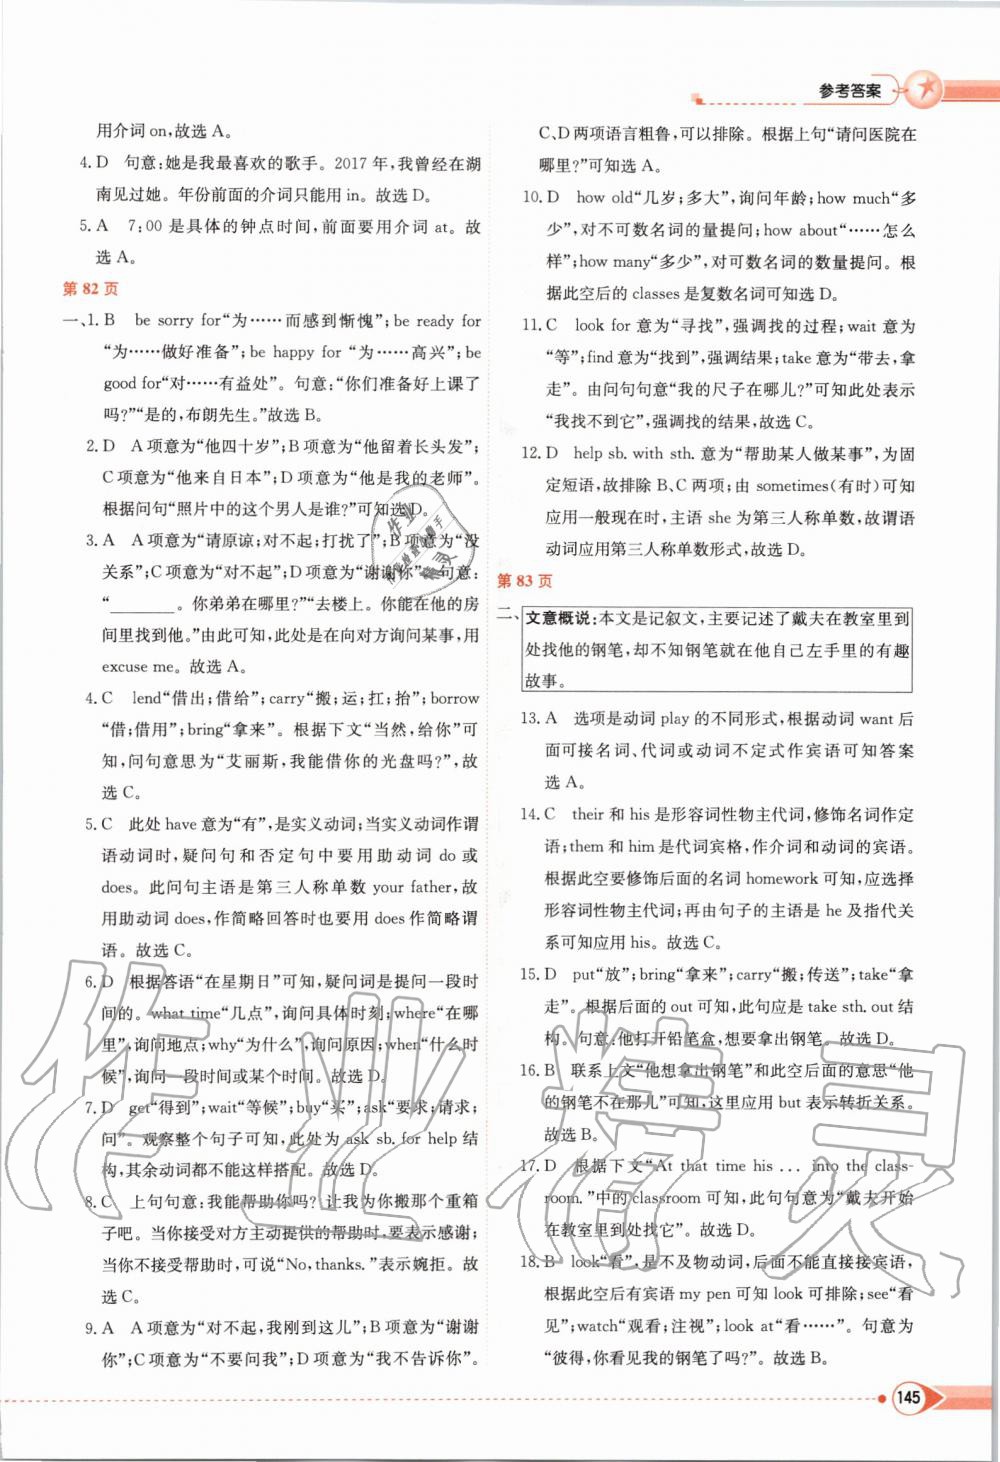 参考答案
用介词 on,故选 A。
4. D 句意:她是我最喜欢的歌手。2017 年,我曾经在湖
南见过她。年份前面的介词只能用 in。故选 D。
5. A 7:00 是具体的钟点时间,前面要用介词 at。故
选 A。
第 82 页
一、1. B be sorry for“为……而感到惭愧”;be ready for
“为……做好准备”;be happy for “为……高兴”;be
good for“对……有益处”。句意:“你们准备好上课了
吗?”“是的,布朗先生。”故选 B。
2. D A 项意为“他四十岁”;B 项意为“他留着长头发”;
C 项意为“他来自日本”;D 项意为“他是我的老师”。
根据问句“照片中的这个男人是谁?”可知选D。
3. A A 项意为“请原谅;对不起;打扰了”;B 项意为“没
关系”;C 项意为“对不起”;D 项意为“谢谢你”。句意:
“________。你弟弟在哪里?”“去楼上。你能在他的房
间里找到他。”由此可知,此处是在向对方询问某事,用
excuse me。故选 A。
4. C lend“借出;借给”;carry“搬;运;扛;抬”;borrow
“借;借用”;bring“拿来”。根据下文“当然,给你”可
知,问句意思为“艾丽斯,我能借你的光盘吗?”,故
选 C。
5. C 此处 have 意为“有”,是实义动词;当实义动词作谓
语动词时,疑问句和否定句中要用助动词 do 或
does。此问句主语是第三人称单数 your father,故
用助动词 does,作简略回答时也要用 does 作简略谓
语。故选 C。
6. D 根据答语“在星期日”可知,疑问词是提问一段时
间的。what time“几点”,询问具体时刻;where“在哪
里”,询问地点;why“为什么”,询问原因;when“什么时
候”,询问一段时间或某天。故选 D。
7. D get“得到”;wait“等候”;buy“买”;ask“要求;请求;
问”。观察整个句子可知,此处为 ask sb. for help 结
构,其余动词都不能这样搭配。故选 D。
8. C 上句句意:我能帮助你吗?让我为你搬那个重箱
子吧。当你接受对方主动提供的帮助时,要表示感谢;
当你不接受帮助时,可说“No,thanks.”表示婉拒。故
选 C。
9. A A 项意为“对不起,我刚到这儿”;B 项意为“谢谢
你”;C 项意为“不要问我”;D 项意为“我不告诉你”。
C、D 两项语言粗鲁,可以排除。根据上句“请问医院在
哪里?”可知选 A。
10. D how old“几岁;多大”,询问年龄;how much“多
少”,对不可数名词的量提问;how about“……怎么
样”;how many“多少”,对可数名词的数量提问。根
据此空后的 classes 是复数名词可知选 D。
11. C look for 意为“寻找”,强调找的过程;wait 意为
“等”;find 意为“找到”,强调结果;take 意为“带去,拿
走”。由问句句意“我的尺子在哪儿?”可知此处表示
“我找不到它”,强调找的结果,故选 C。
12. D help sb. with sth. 意为“帮助某人做某事”,为固
定短语,故排除 B、C 两项;由 sometimes(有时)可知
应用一般现在时,主语 she 为第三人称单数,故谓语
动词应用第三人称单数形式,故选 D。
第 83 页
二、文意概说:本文是记叙文,主要记述了戴夫在教室里到
处找他的钢笔,却不知钢笔就在他自己左手里的有趣
故事。
13. A 选项是动词 play 的不同形式,根据动词 want 后
面可接名词、代词或动词不定式作宾语可知答案
选 A。
14. C their 和 his 是形容词性物主代词,修饰名词作定
语;them 和 him 是代词宾格,作介词和动词的宾语。
根据此空要修饰后面的名词 homework 可知,应选择
形容词性物主代词;再由句子的主语是 he 及指代关
系可知应用 his。故选 C。
15. D put“放”;bring“拿来”;carry“搬;传送”;take“拿
走”。根据后面的 out 可知,此句应是 take sth. out 结
构。句意:他打开铅笔盒,想要拿出钢笔。故选 D。
16. B 联系上文“他想拿出钢笔”和此空后面的意思“他
的钢笔不在那儿”可知,这里应用 but 表示转折关系。
故选 B。
17. D 根据下文“At that time his ... into the class-
room.”中的 classroom 可知,此句句意为“戴夫开始
在教室里到处找它”。故选 D。
18. B look“看”,是不及物动词,后面不能直接接宾语,
根据此空后有宾语 my pen 可知 look 可排除;see“看
见”;watch“观看;注视”;look at“看……”。句意为
“彼得,你看见我的钢笔了吗?”。故选 B。
145
作业精灵